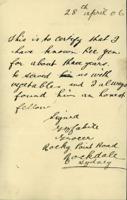 28th April 06
This is to certify that I
have known Kee Yen
for about three years.
He served us with
vegetables and I always
found him an honest
fellow
Signed
Grocer
Rocky Point Road
Rockdale
Sydney